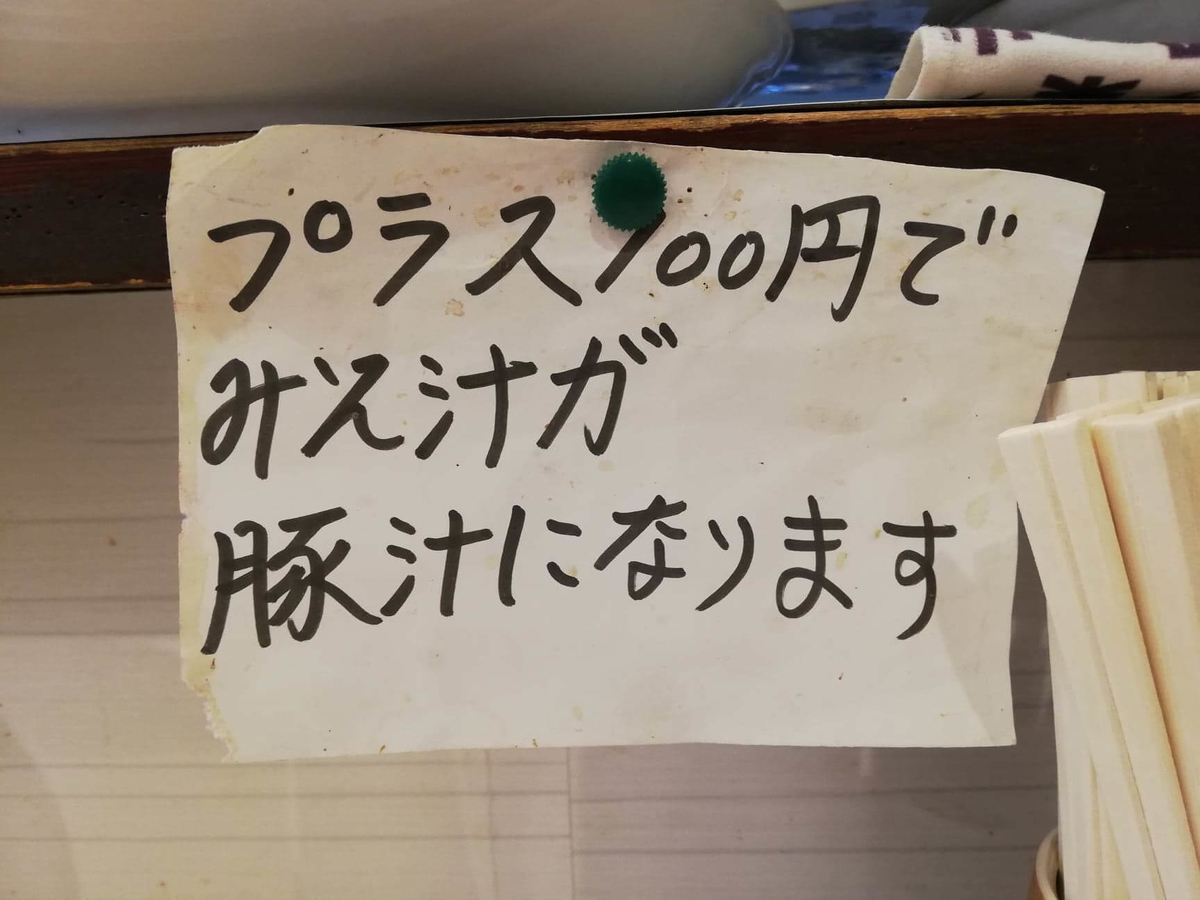 プラス100円で
みそ汁が
豚汁になります